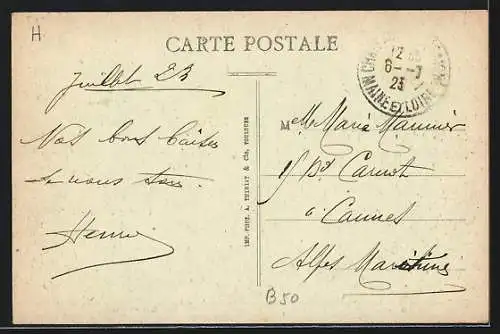 H
CARTE POSTALE
12
6--7
23
MAINE ET LOIRE
Juillet 23
Nos bons baisers
de nous tous.
Henri
IMP. PHOT. A. THIRIAT & Cie, TOULOUSE
Me Marie Maunier
15 Bd Carnot
à Cannes
Alpes Maritimes
B50